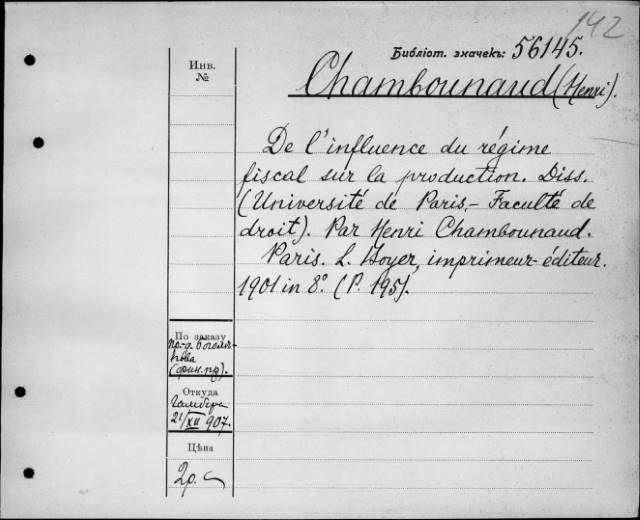 142
Библіот. значекъ: 56145.
Инв.
№
Chambounaud (Henri).
De l'influence du régime
fiscal sur la production. Diss.
(Université de Paris,- Faculté de
droit). Par Henri Chambounaud.
Paris. L. Boyer, imprimeur-éditeur.
1901 in 8º. (P. 195).
По заказу
пр-д. Боголѣ-
пова
(фин. пр).
Откуда
21/XII 907.
Цѣна
2р.